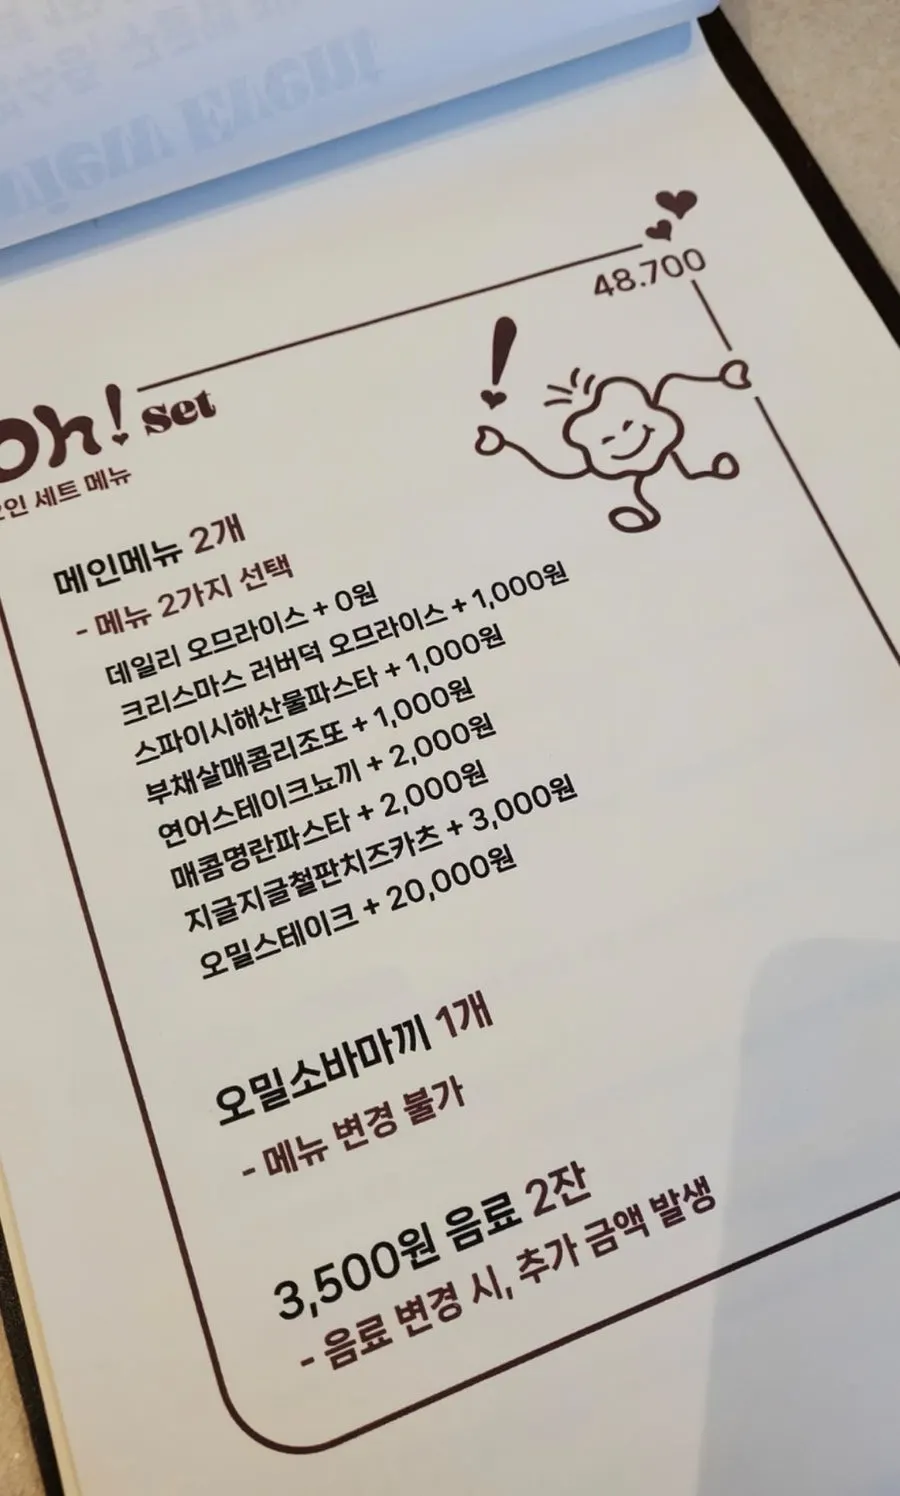 view Event
48.700
Oh! set
인 세트 메뉴
메인메뉴 2개
- 메뉴 2가지 선택
데일리 오므라이스 + 0원
크리스마스 러버덕 오므라이스 + 1,000원
스파이시해산물파스타 + 1,000원
부채살매콤리조또 + 1,000원
연어스테이크뇨끼 + 2,000원
매콤명란파스타 + 2,000원
지글지글철판치즈카츠 + 3,000원
오밀스테이크 + 20,000원
오밀소바마끼 1개
- 메뉴 변경 불가
3,500원 음료 2잔
- 음료 변경 시, 추가 금액 발생